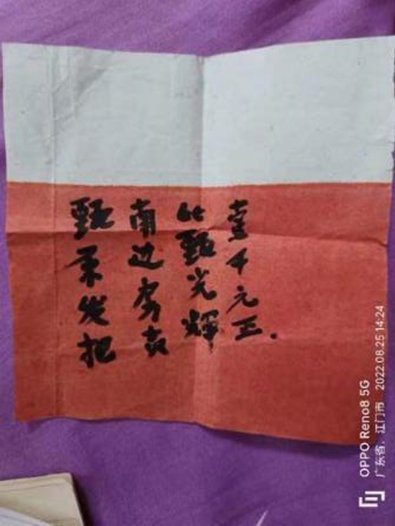 甄发把
南边房卖
比甄光辉
壹千元正.
OPPO Reno8 5G
广东省，江门市 2022.08.25 14:24